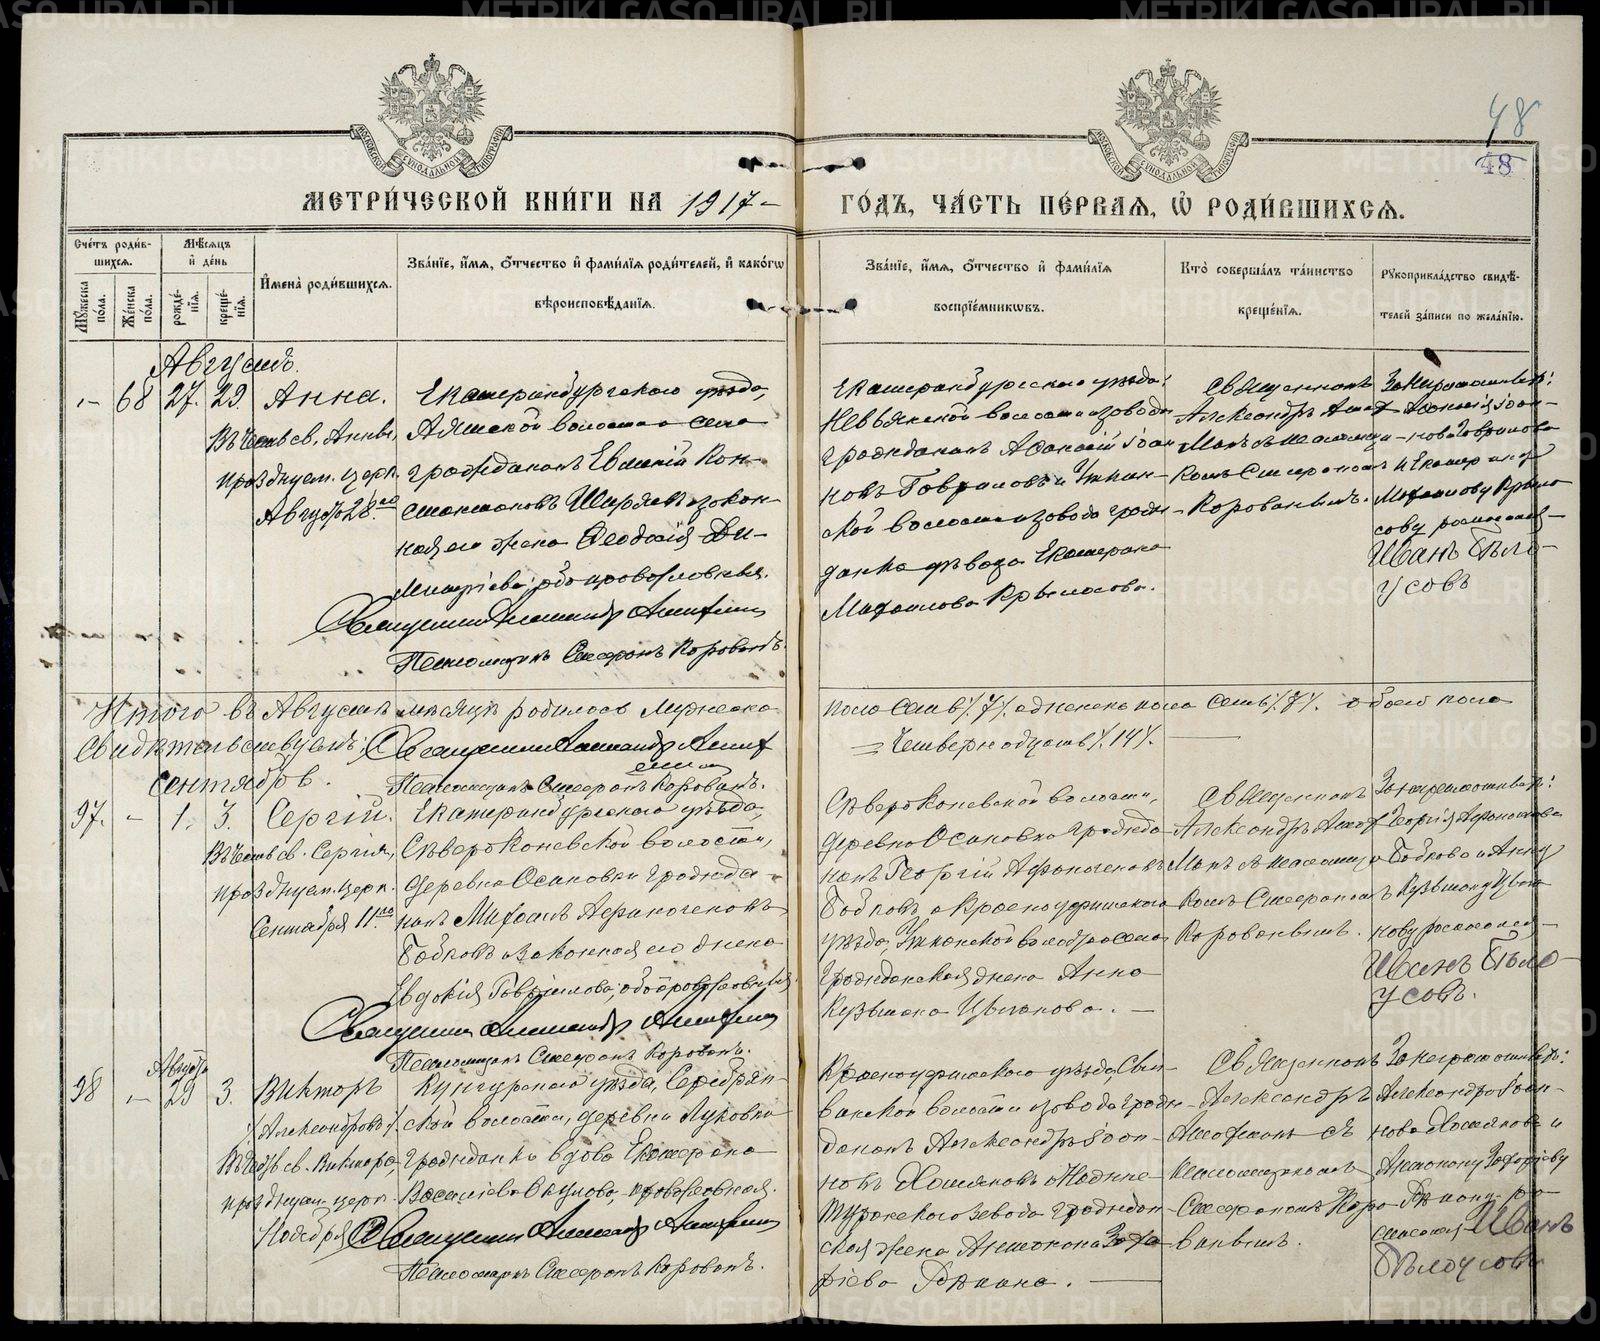 48
48
МЕТРИ́ЧЕСКОЙ КНИ́ГИ НА 1917
ГО́ДЪ, ЧА́СТЬ ПЕ́РВАЯ, Ѡ҆ РОДИ́ВШИХСЯ.
Сче́тъ роди́вшихся.
Мꙋ́жеска по́ла.
Же́нска по́ла.
Мѣ́сяцъ и҆ де́нь
рожде́нїя.
креще́нїя.
И҆мена̀ роди́вшихся.
Зва́нїе, и҆́мя, ѻ҆́тчество и҆ фами́лїя роди́телей, и҆ како́гѡ
вѣроисповѣ́данїя.
Зва́нїе, и҆́мя, ѻ҆́тчество и҆ фами́лїя
воспрїе́мникѡвъ.
Кто̀ соверша́лъ та́инство
креще́нїя.
Рꙋкоприкла́дство свидѣ́-
телей за́писи по жела́нїю.
Августъ.
- 68 27. 29. Анна.
Въ честь св. Анны,
празднуем. церк.
Августа 28го
Екатеринбургскаго уѣзда,
Аятской волости и села
гражданинъ Евгеній Кон-
стантиновъ Ширяевъ и закон-
ная его жена Ѳеодосія Ди-
митріева, оба православные.
Священникъ Александръ
Псаломщикъ Стефанъ Корованъ.
Екатеринбургскаго уѣзда:
Невьянской волости и завода
гражданинъ Аѳанасій Іоан-
новъ Гавриловъ и Уткин-
ской волости и завода граж-
данка дѣвица Екатерина
Михайлова Крылосова.
Священникъ
Александръ
съ псаломщи-
комъ Стефаномъ
Корованымъ.
За неграмотныхъ:
Аѳанасія Іоан-
нова Гаврилова
и Екатерину
Михайлову Крыло-
сову росписался
Иванъ Бѣло-
усовъ
Итого въ Августѣ мѣсяцѣ родилось Мужеска
пола семь /7/ а женска пола семь /7/. обоего пола
Свидѣтельствуемъ: Священникъ Александръ
— Четырнадцать /14/.
Псаломщикъ Стефанъ Корованъ.
Сентябрь.
97. - 1. 3. Сергій.
Въ честь св. Сергія,
празднуем. церк.
Сентября 11го
Екатеринбургскаго уѣзда,
Сѣверо Коневской волости,
деревни Осиновки гражда-
нинъ Михаилъ Аѳиногеновъ
Бабковъ и законная его жена
Евдокія Гаврилова, оба православные.
Священникъ Александръ
Псаломщикъ Стефанъ Корованъ.
Сѣверо Коневской волости,
деревни Осиновки гражда-
нинъ Георгій Аѳиногеновъ
Бабковъ и Красноуфимскаго
уѣзда, Уткинской волости и села
гражданская жена Анна
Кузьмина Цыганова.
Священникъ
Александръ
съ псаломщи-
комъ Стефаномъ
Корованымъ.
За неграмотныхъ:
Георгія Аѳиногенова
Бабкова и Анну
Кузьмину Цыга-
нову росписался
Иванъ Бѣло-
усовъ.
Августа
98 - 29 3. Викторъ
/Александровъ/.
Въ честь св. Виктора,
празднуем. церк.
Ноября
Кунгурскаго уѣзда, Серебрян-
ской волости, деревни Луковки
гражданка вдова Екатерина
Васильева Окулова, православная.
Священникъ Александръ
Псаломщикъ Стефанъ Корованъ.
Красноуфимскаго уѣзда,
волости и завода граж-
данинъ Александръ Іоан-
новъ Хомяковъ и Нижне-
Туринскаго завода граждан-
ская жена Антонина Заха-
ріева
Священникъ
Александръ
съ
псаломщикомъ
Стефаномъ Коро-
ванымъ.
За неграмотныхъ:
Александра Іоан-
нова Хомякова и
Антонину Захаріеву
росписался Иванъ
Бѣлоусовъ
METRIKI.GASO-URAL.RU